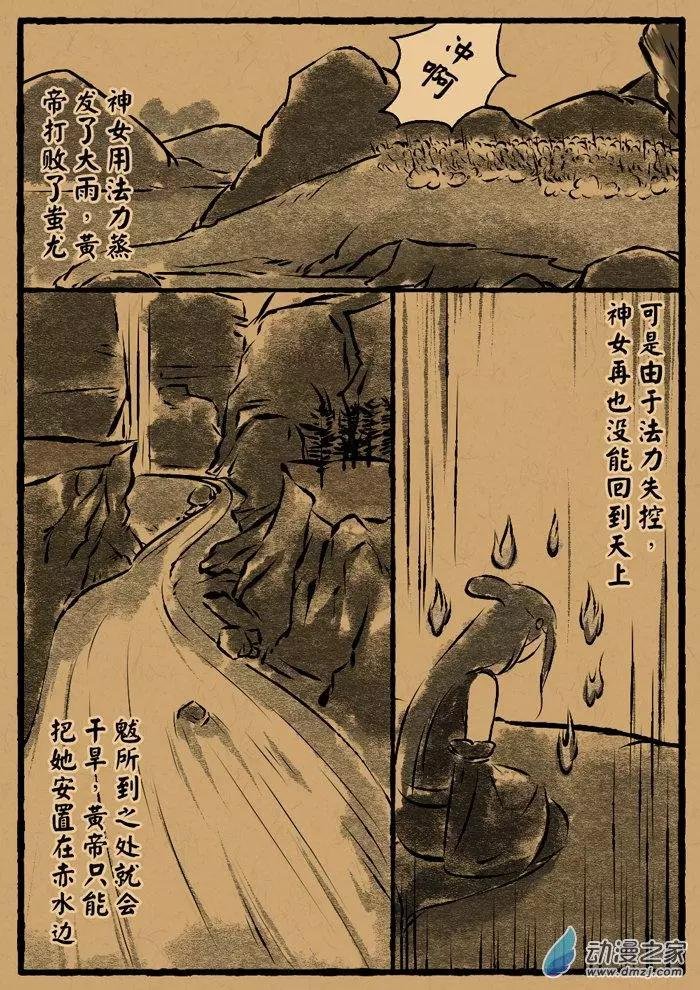 冲
啊
神女用法力蒸
发了大雨，黃
帝打败了蚩尤
可是由于法力失控，
神女再也没能回到天上
魃所到之处就会
干旱，黃帝只能
把她安置在赤水边
动漫之家
www.dmzj.com